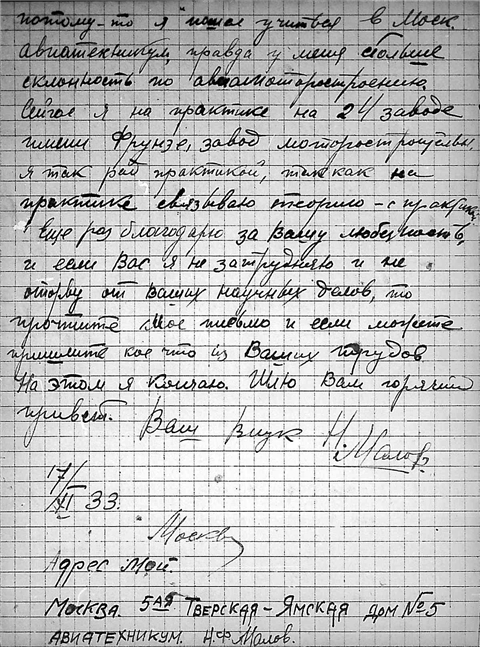 потому-то я пошел учиться в Моск.
авиатехникум, правда у меня больше
склонность по авиамоторостроению.
Сейчас я на практике на 24 заводе
имени Фрунзе, завод моторостроительн.
я так рад практикой, так как на
практике связываю теорию - с практик.
Еще раз благодарю за Вашу любезность,
и если Вас я не затрудняю и не
оторву от Ваших научных делов, то
прочтите Мое письмо и если можете
пришлите кое что из Ваших трудов
На этом я Кончаю. Шлю Вам горячий
привет.
Ваш внук Н. Малов
17/
XI 33.
Москва
Адрес Мой.
Москва. 5ая Тверская-Ямская дом №5
Авиатехникум. Н.Ф. Малов.